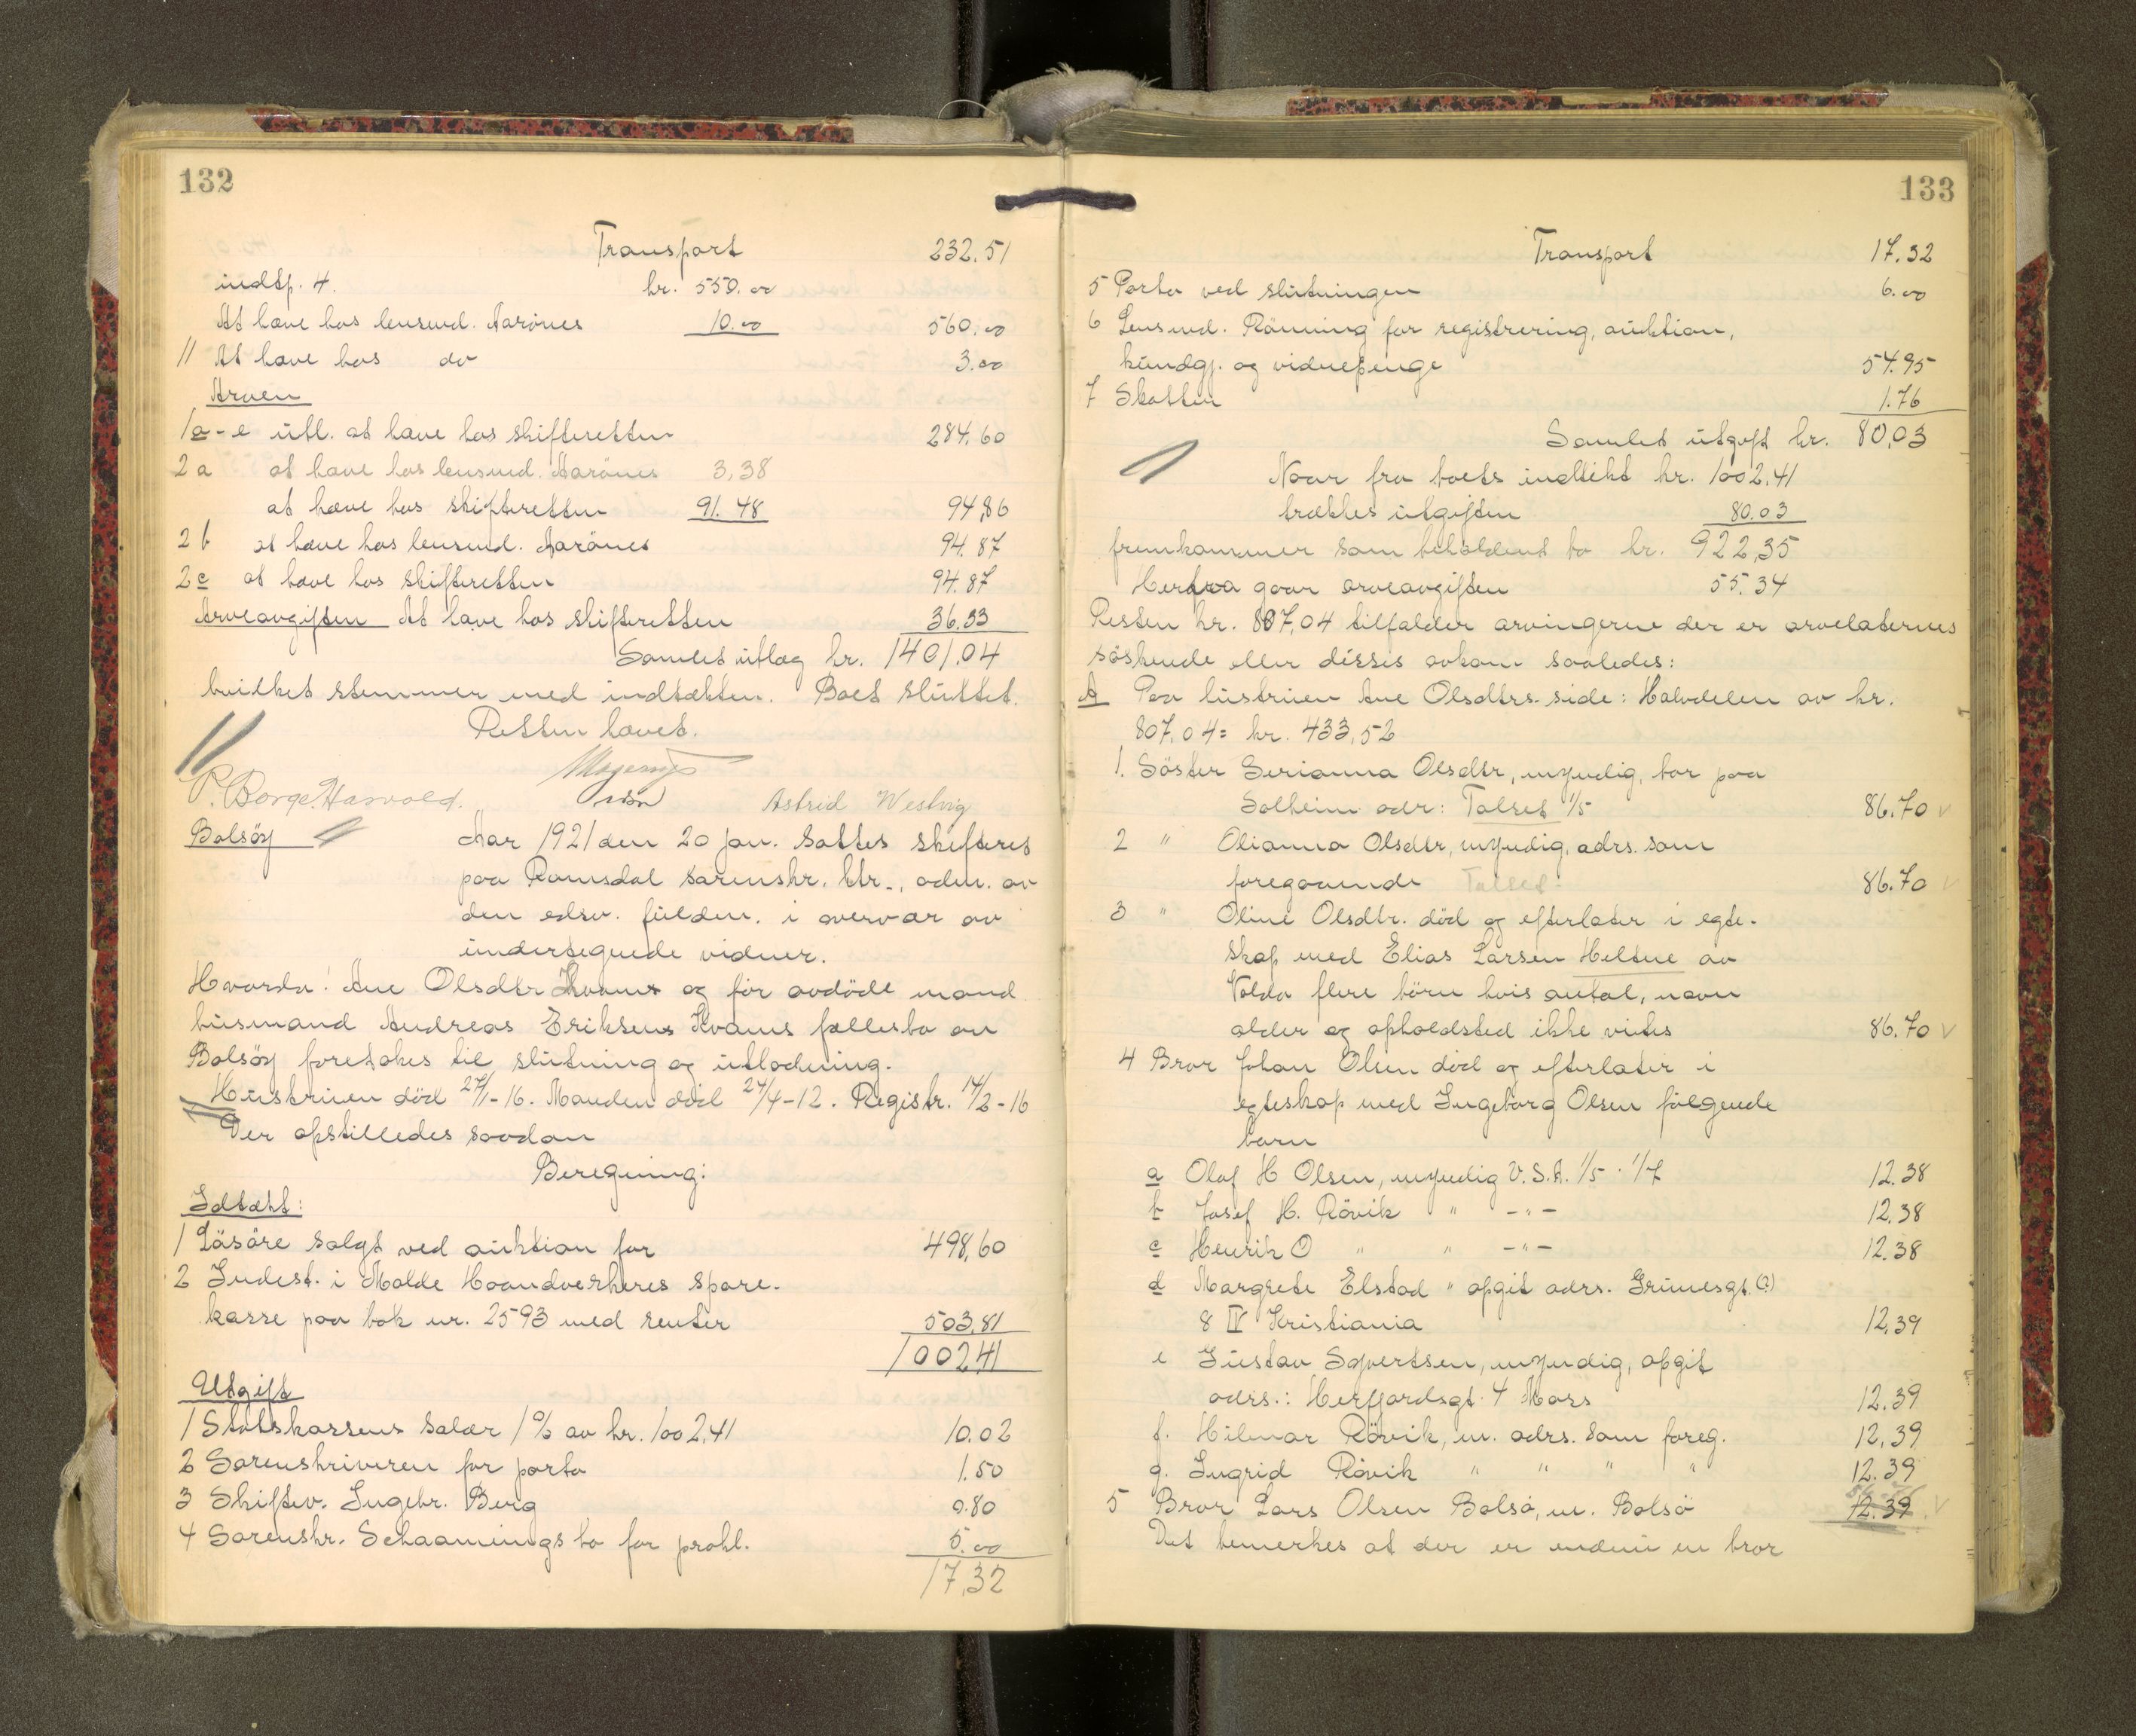 132
Transport 232.51
indtp. 4. kr. 550.00
At hæve hos lensmd. Aarönes 10.00 560.00
11 At hæve hos do 3.00
Arven
1a-e utl. at hæve hos skifteretten 284.60
2a at hæve hos lensmd. Aarönes 3,38
at hæve hos skifteretten 91.48 94,86
2b at hæve hos lensmd. Aarönes 94.87
2c at hæve hos skifteretten 94.87
Arveavgiften At hæve hos skifteretten 36.33
Samlet utlæg kr. 1401.04
hvilket stemmer med indtækten. Boet sluttet.
Retten hævet.
P. Borge Harvold. Astrid Westvig
Bolsöy Aar 1921 den 20 jan. sattes skifteret
paa Romsdal sorenskr. ktr., adm. av
den edsv. fuldm. i overvær av
undertegnede vidner.
Hvorda: Ane Olsdtr Kvams og för avdöde mand
husmand Andreas Eriksens Kvams fællesbo av
Bolsöy foretokes til slutning og utlodning.
Hustruen död 27/1-16. Manden död 24/4-12. Registr. 14/2-16
Der opstilledes saadan
Beregning:
Idtækt:
1 Lösöre solgt ved auktion for 498,60
2 Indest. i Molde Haandverkeres spare-
kasse paa bok nr. 2593 med renter 503,81
1002,41
Utgift
1 Statskassens salær 1% av kr. 1002,41 10.02
2 Sorenskriveren for porto 1.50
3 Skiftev. Ingebr. Berg 0.80
4 Sorenskr. Schaannings bo for prokl. 5.00
17,32
133
Transport 17.32
5 Porto ved slutningen 6.00
6 Lensmd. Rönning for registrering, auktion,
kundgj. og vidnepenge 54.95
7 Skatten 1.76
Samlet utgift kr. 80,03
Naar fra boets indtekt kr. 1002,41
trækkes utgiften 80.03
fremkommer som beholdent bo kr. 922,35
Herfra gaar arveavgiften 55.34
Resten kr. 867,04 tilfalder arvingerne der er arvelaternes
söskende eller disses avkom saaledes:
A Paa hustruen Ane Olsdtrs. side: Halvdelen av kr.
807,04 = kr. 433,52
1. Söster Serianna Olsdtr, myndig, bor paa
Solheim adr: Talset 1/5 86.70
2 " Olianna Olsdtr, myndig, adrs. som
foregaaende Talset 86.70
3 " Oline Olsdtr. död og efterlater i egte-
skap med Elias Larsen Heltne av
Volda flere börn hvis antal, navn
alder og opholdsted ikke vites 86.70
4 Bror Johan Olsen död og efterlater i
egteskap med Ingeborg Olsen fölgende
barn
a Olaf H Olsen, myndig U.S.A. 1/5 · 1/7 12.38
b Josef H. Rövik " -"- 12.38
c Henrik O " " -"- 12.38
d Margrete Elstad " opgit adrs. Grimesgt. (?)
8 IV Kristiania 12,39
e Gustav Syvertsen, myndig, opgit
adrs.: Herfjordsgt. 4 Moss 12.39
f. Hilmar Rövik, m. adrs. som foreg. 12,39
g. Ingrid Rövik " " " " 12.39
5 Bror Lars Olsen Bolsö, m. Bolsö 12.39
Det bemerkes at der er endnu en bror